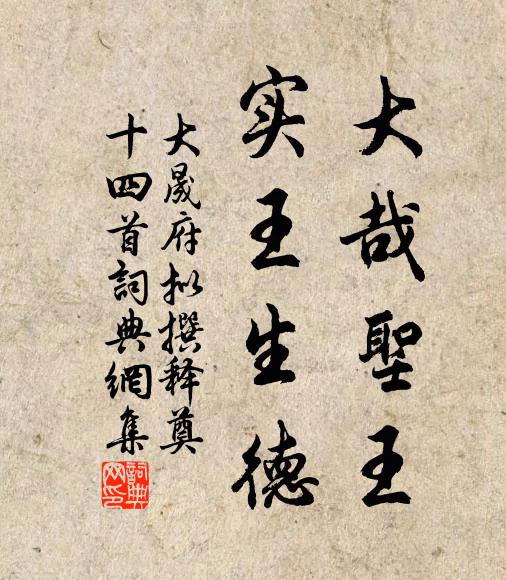 大哉聖王
实王生德
大晟府拟撰释奠
十四首詞典網集
詞典网印